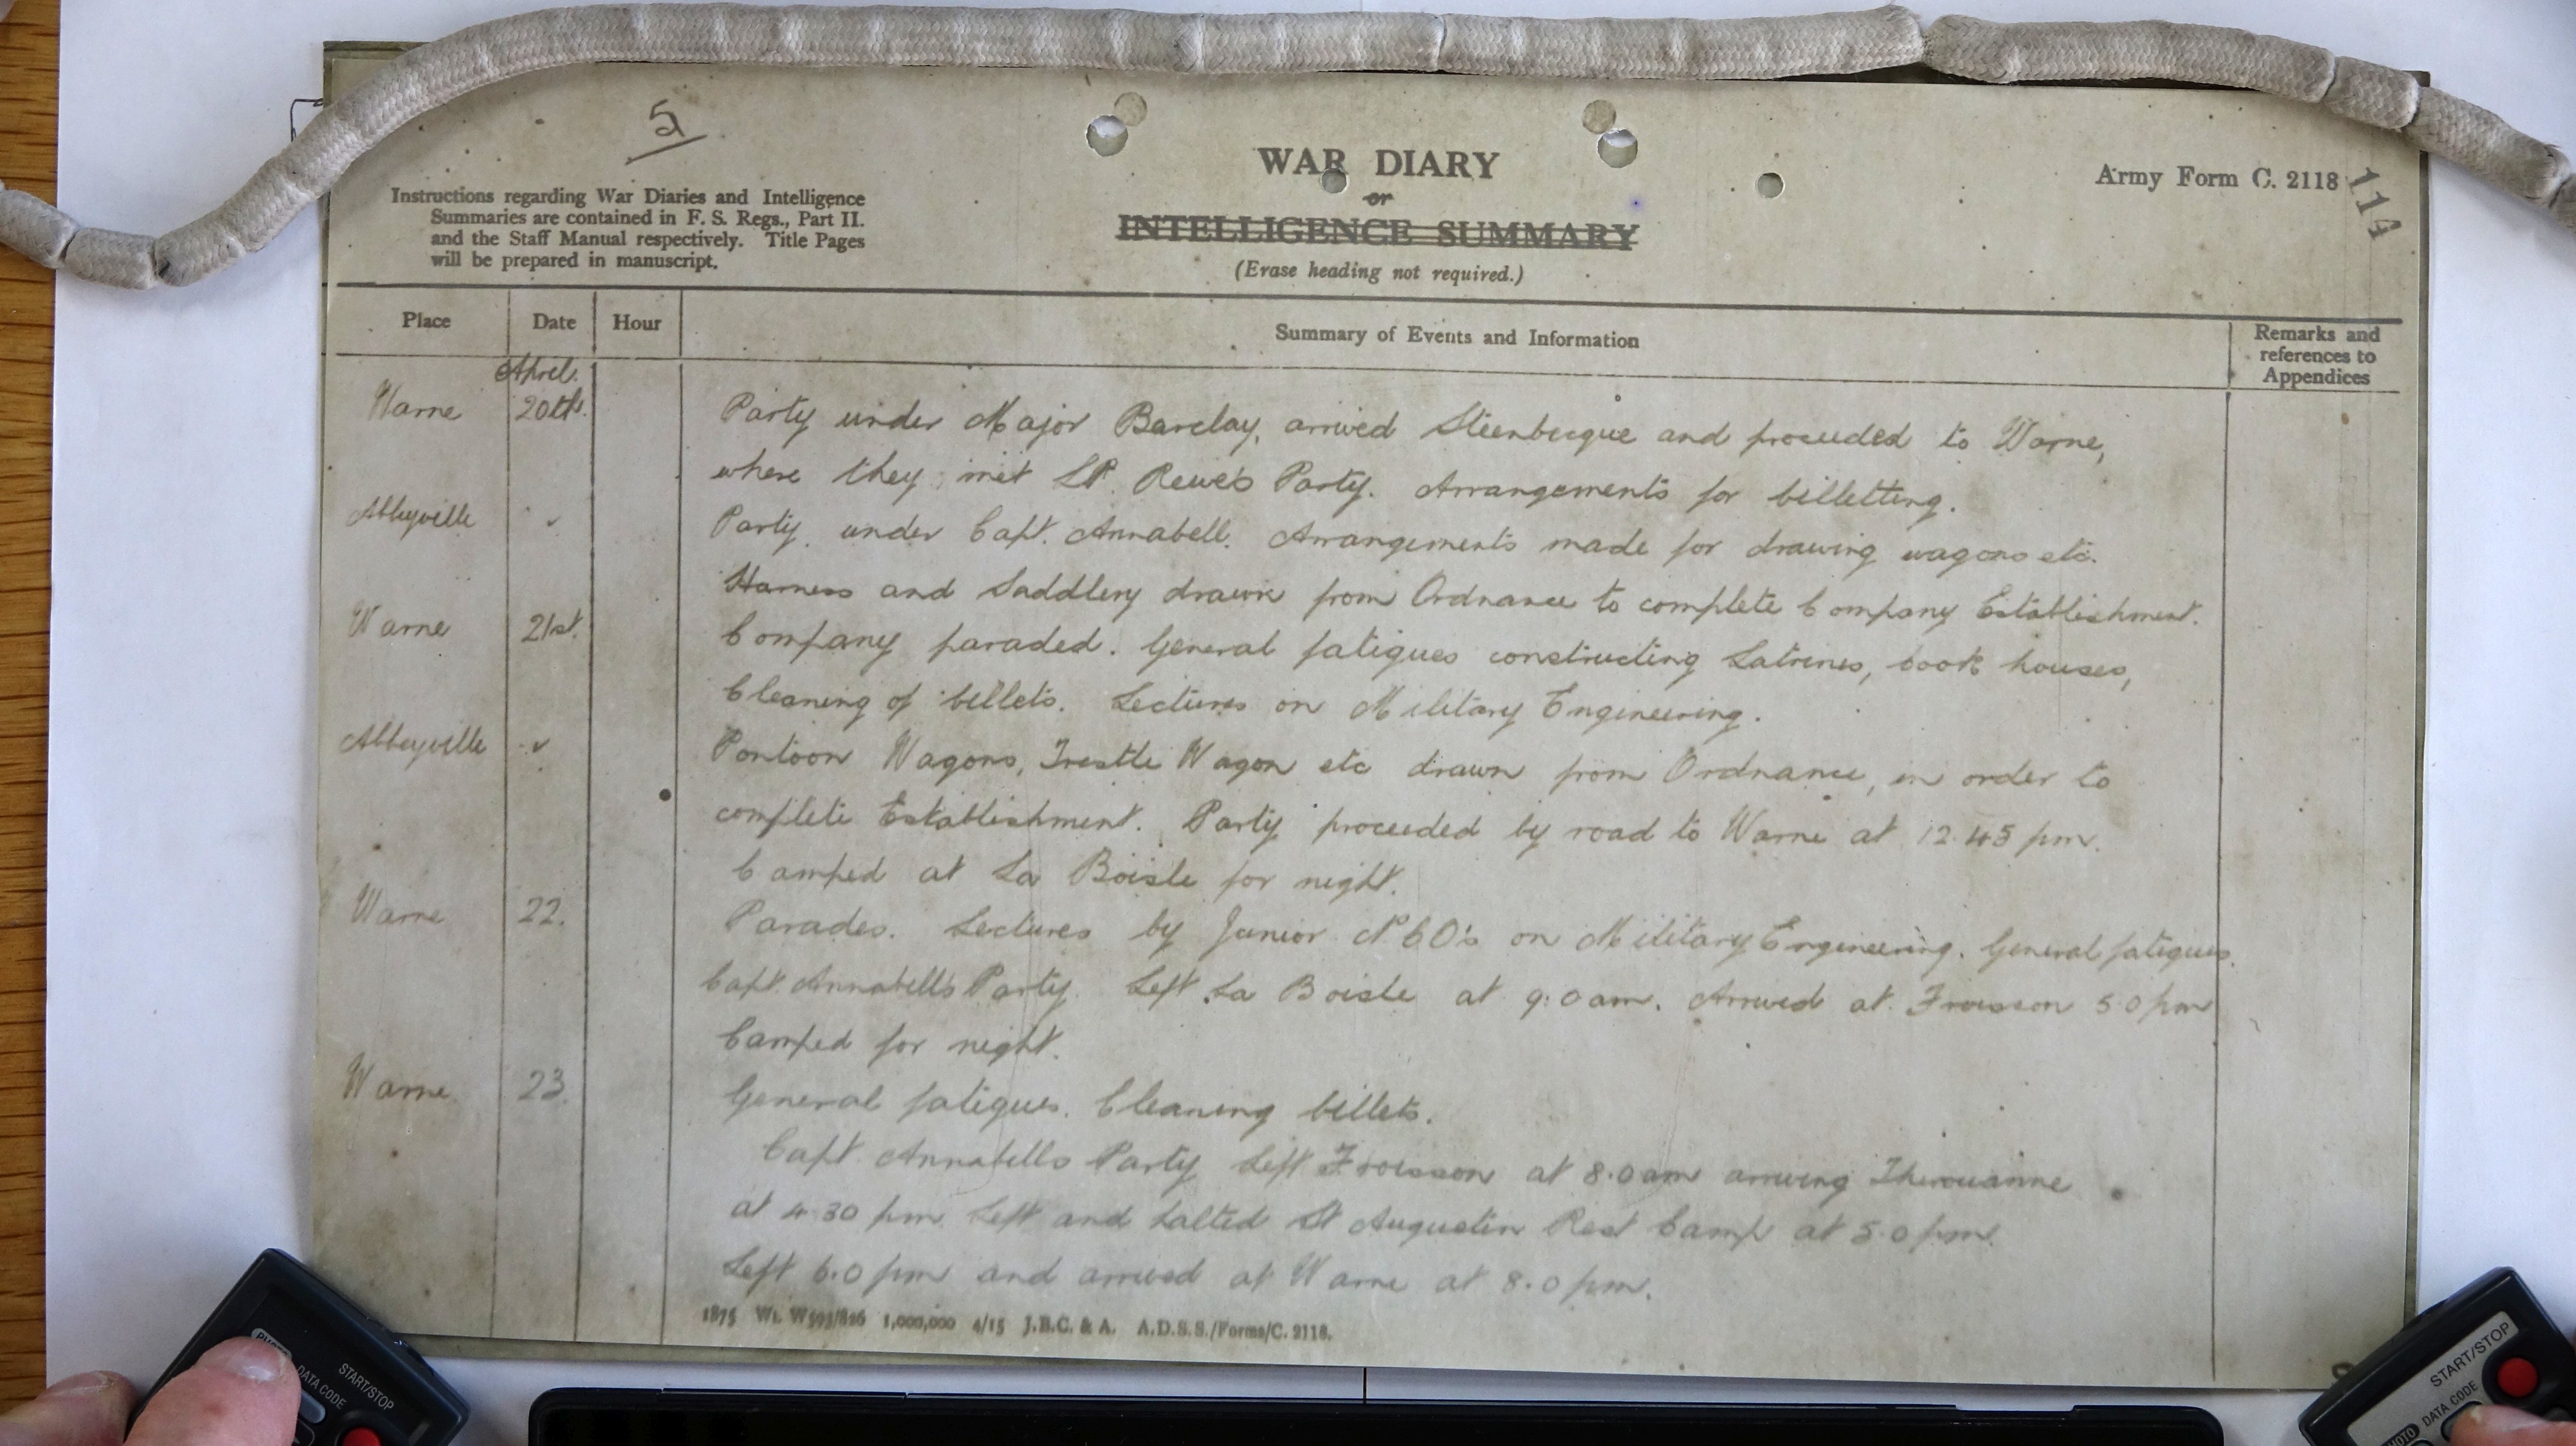 5
WAR DIARY
or
INTELLIGENCE SUMMARY
(Erase heading not required.)
Army Form C. 2118
114
Instructions regarding War Diaries and Intelligence
Summaries are contained in F. S. Regs., Part II.
and the Staff Manual respectively. Title Pages
will be prepared in manuscript.
Place Date Hour Summary of Events and Information Remarks and references to Appendices
April.
Warne 20th. Party under Major Barclay, arrived Steenbecque and proceeded to Warne,
where they met Lt. Rewe's Party. Arrangements for billetting.
Abbeyville " Party under Capt. Annabell. Arrangements made for drawing wagons etc.
Harness and Saddlery drawn from Ordnance to complete Company Establishment.
Warne 21st. Company paraded. General fatigues constructing Latrines, cook houses,
Cleaning of billets. Lectures on Military Engineering.
Abbeyville " Pontoon Wagons, Trestle Wagon etc drawn from Ordnance, in order to
complete Establishment. Party proceeded by road to Warne at 12.45 pm.
Camped at La Boisle for night.
Warne 22. Parades. Lectures by Junior N.C.O's on Military Engineering. General fatigues.
Capt. Annabell's Party. Left La Boisle at 9.0 am. Arrived at Froisson 5.0 pm
Camped for night.
Warne 23. General fatigues. Cleaning billets.
Capt. Annabells Party left Froisson at 8.0 am arriving Therouanne
at 4.30 pm left and halted St Augustin Rest Camp at 5.0 pm.
Left 6.0 pm and arrived at Warne at 8.0 pm.
1875 Wt. W593/826 1,000,000 4/15 J.B.C. & A. A.D.S.S./Forms/C. 2118.
PHOTO DATA CODE START/STOP
START/STOP
DATA CODE
PHOTO